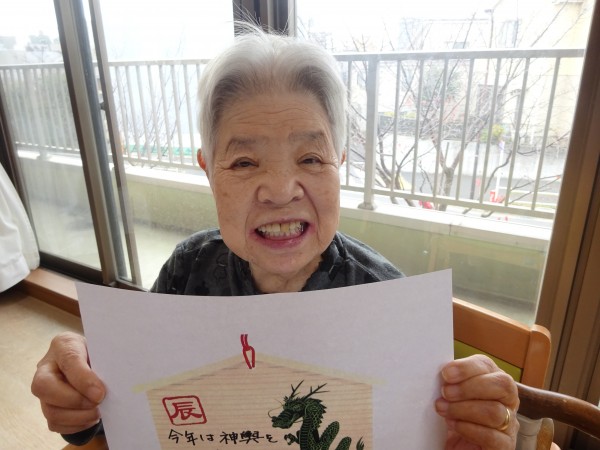 辰
今年は神輿を